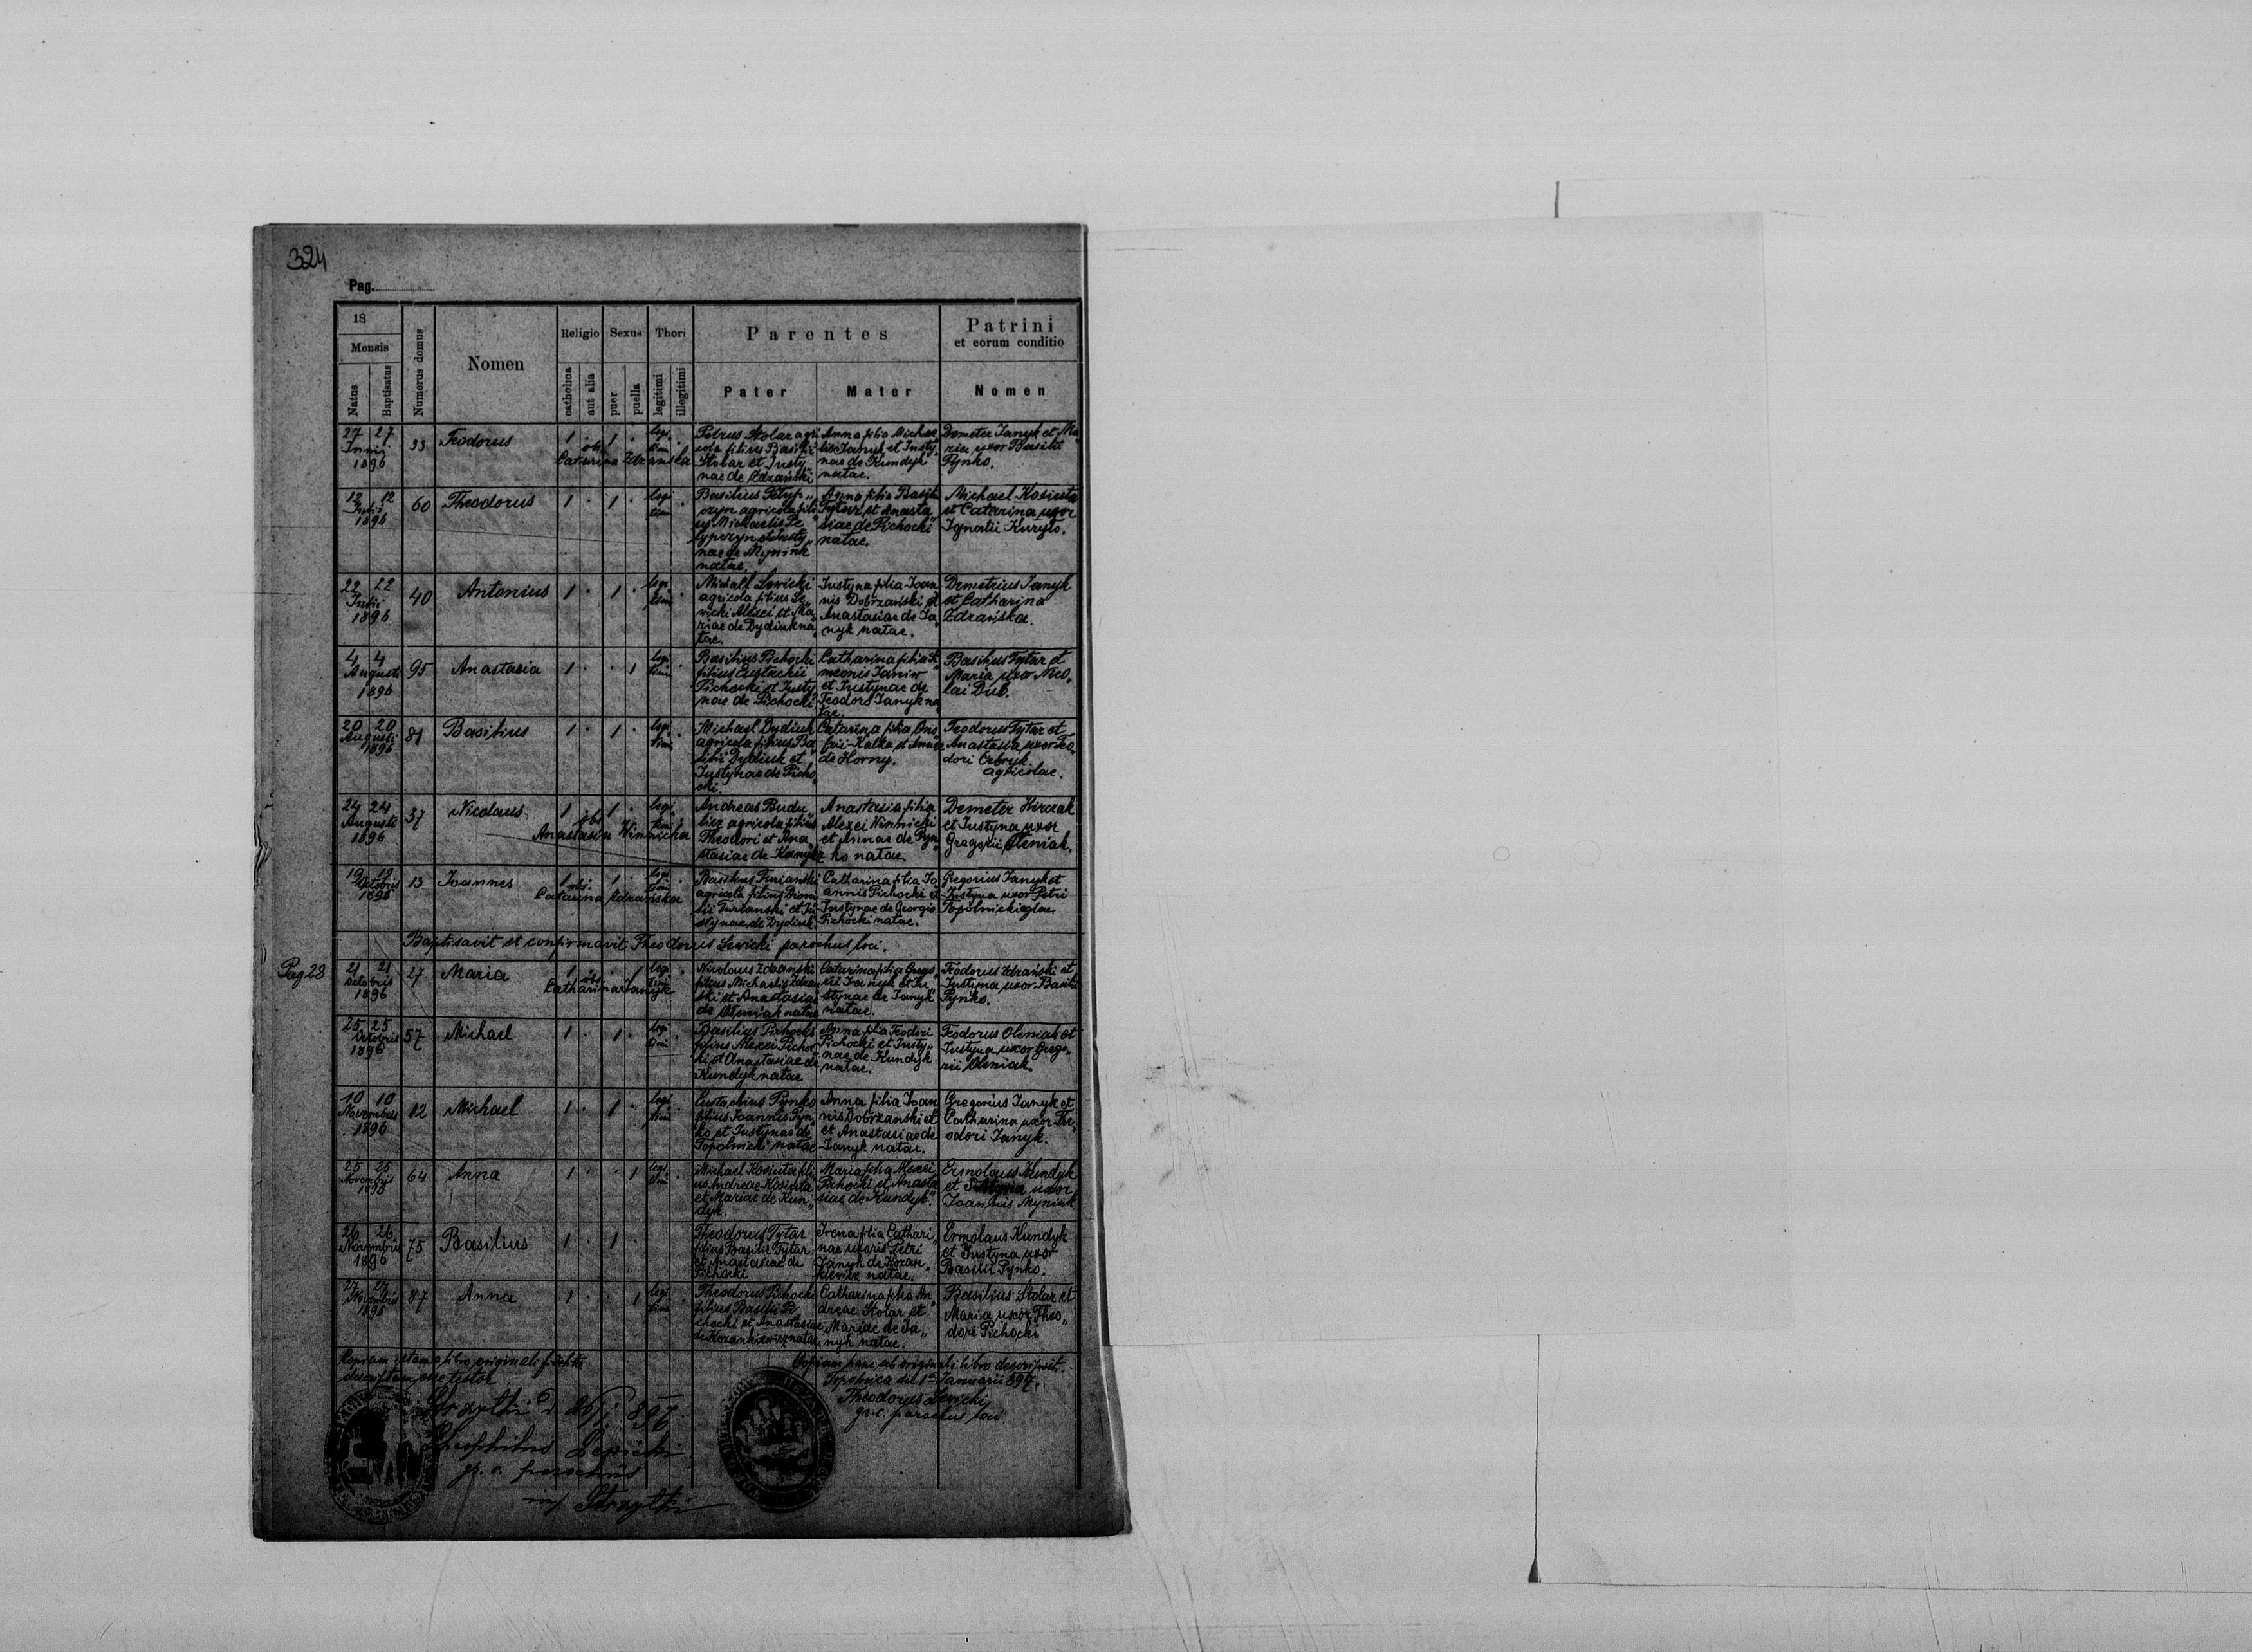 324
Pag.
18
Mensis
Natus
Baptisatus
Numerus domus
Nomen
Religio
catholica
aut alia
Sexus
puer
puella
Thori
legitimi
illegitimi
Parentes
Pater
Mater
Patrini
et eorum conditio
Nomen
27 27
Junii
1896
33
Teodorus
1 . 1 .
obs.
Catarina Zdrańska
legi
timi
Petrus Stolar agri
cola filius Basilii
Stolar et Justy
nae de Zdrański
Anna filia Michae
lis Janyk et Justy
nae de Kundyk
natae.
Demeter Janyk et Ma
ria uxor Basilii
Pynko.
12 12
Julii
1896
60
Theodorus
1 . 1 .
legi
timi
Basilius Petyp„
czyn agricola fili
us Michaelis Pe
typczyn et Justy
nae de Mynink
natae.
Anna filia Basilii
Tytar et Anasta
siae de Pichocki
natae.
Michael Kosiuta
et Catarina uxor
Ignatii Kuryło.
22 22
Julii
1896
40
Antonius
1 . 1 .
legi
timi
Michael Lewicki
agricola filius Le
wicki Alexei et Ma
riae de Dydiuk na
tae.
Justyna filia Joan
nis Dobrzański et
Anastasiae de Ja
nyk natae.
Demetrius Janyk
et Catharina
Zdrańska.
4 4
Augusti
1896
95
Anastasia
1 . . 1
legi
timi
Basilius Pichocki
filius Eustachii
Pichocki et Justy
nae de Pichocki
Catharina filia Si
meonis Janiw
et Justynae de
Teodoro Janyk na
tae.
Basilius Tytar et
Maria uxor Nico„
lai Dub.
20 20
Augusti
1896
81
Basilius
1 . 1 .
legi
timi
Michael Dydiuk
agricola filius Ba
silii Dydiuk et
Justynae de Picho
cki.
Catarina filia Ono
frii Kalka et Annae
de Horny.
Teodorus Tytar et
Anastasia uxor Teo„
dori
agricolae.
24 24
Augusti
1896
37
Nicolaus
1 . 1 .
obs.
Anastasia Winnicka
legi
timi
Andreas Budu
agricola filius
Theodori et Ana
stasiae de
Anastasia filia
Alexei Winnicki
et Annae de Pyn
ko natae.
Demeter Hirczak
et Justyna uxor
Gregorii Oleniak.
19 19
Octobris
1896
13
Joannes
1 . 1 .
obs.
Catarina Zdrańska
legi
timi
Basilius Turianski
agricola filius Dioni
sii Turianski et Ju
stynae de Dydiuk
Catharina filia Jo
annis Pichocki et
Justynae de Georgio
Pichocki natae.
Gregorius Janyk et
Justyna uxor Petri
Topolnicki
Baptisavit et confirmavit Theodorus Lewicki parochus loci.
Pag 28
21 21
Octobris
1896
27
Maria
1 . . 1
obs.
Catharina Janyk
legi
timi
Nicolaus Zdrański
filius Michaelis Zdrań
ski et Anastasiae
de Oleniak natae
Catarina filia Grego
rii Janyk et Ju
stynae de Janyk
natae.
Teodorus Zdrański et
Justyna uxor Basilii
Pynko.
25 25
Octobris
1896
57
Michael
1 . 1 .
legi
timi
Basilius Pichocki
filius Alexei Pichoc
ki et Anastasiae de
Kundyk natae
Anna filia Teodori
Pichocki et Justy„
nae de Kundyk
natae.
Teodorus Oleniak et
Justyna uxor Grego„
rii Oleniak.
10 10
Novembris
1896
12
Michael
1 . 1 .
legi
timi
Eustachius Pynko
filius Joannis Pyn
ko et Justynae de
Topolnicki natae
Anna filia Joan
nis Dobrzanski et
et Anastasiae de
Janyk natae.
Gregorius Janyk et
Catharina uxor The„
odori Janyk.
25 25
Novembris
1896
64
Anna
1 . . 1
legi
timi
Michael Kosiuta fili
us Andreae Kosiuta
et Mariae de Kun„
dyk.
Maria filia Alexei
Pichocki et Anasta
siae de Kundyk.
Ermolaus Kundyk
et uxor
Joannis Myniuk
26 26
Novembris
1896
75
Basilius
1 . 1 .
Theodorus Tytar
filius Basilii Tytar
et Anastasiae de
Pichocki
Irena filia Cathari„
nae uxoris Petri
Janyk de Kozan„
kiewicz natae.
Ermolaus Kundyk
et Justyna uxor
Basilii Pynko.
27 27
Novembris
1896
87
Anna
1 . . 1
legi
timi
Theodorus Pichocki
filius Basilii Pi
chocki et Anastasiae
de Kozankiewicz natae
Catharina filia An„
dreae Stolar et
Mariae de Ja„
nyk natae.
Basilius Stolar et
Maria uxor Theo„
dori Pichocki
Copiam istam a libro originali fideliter
descriptam esse testor
26/1 897
Theophilus Lewicki
gr. c. parochus
in Strzyłki
Copiam hanc ab originali libro descripsit.
Topolnica die 1a Januarii 897.
Theodorus Lewicki
gr. c. parochus loci